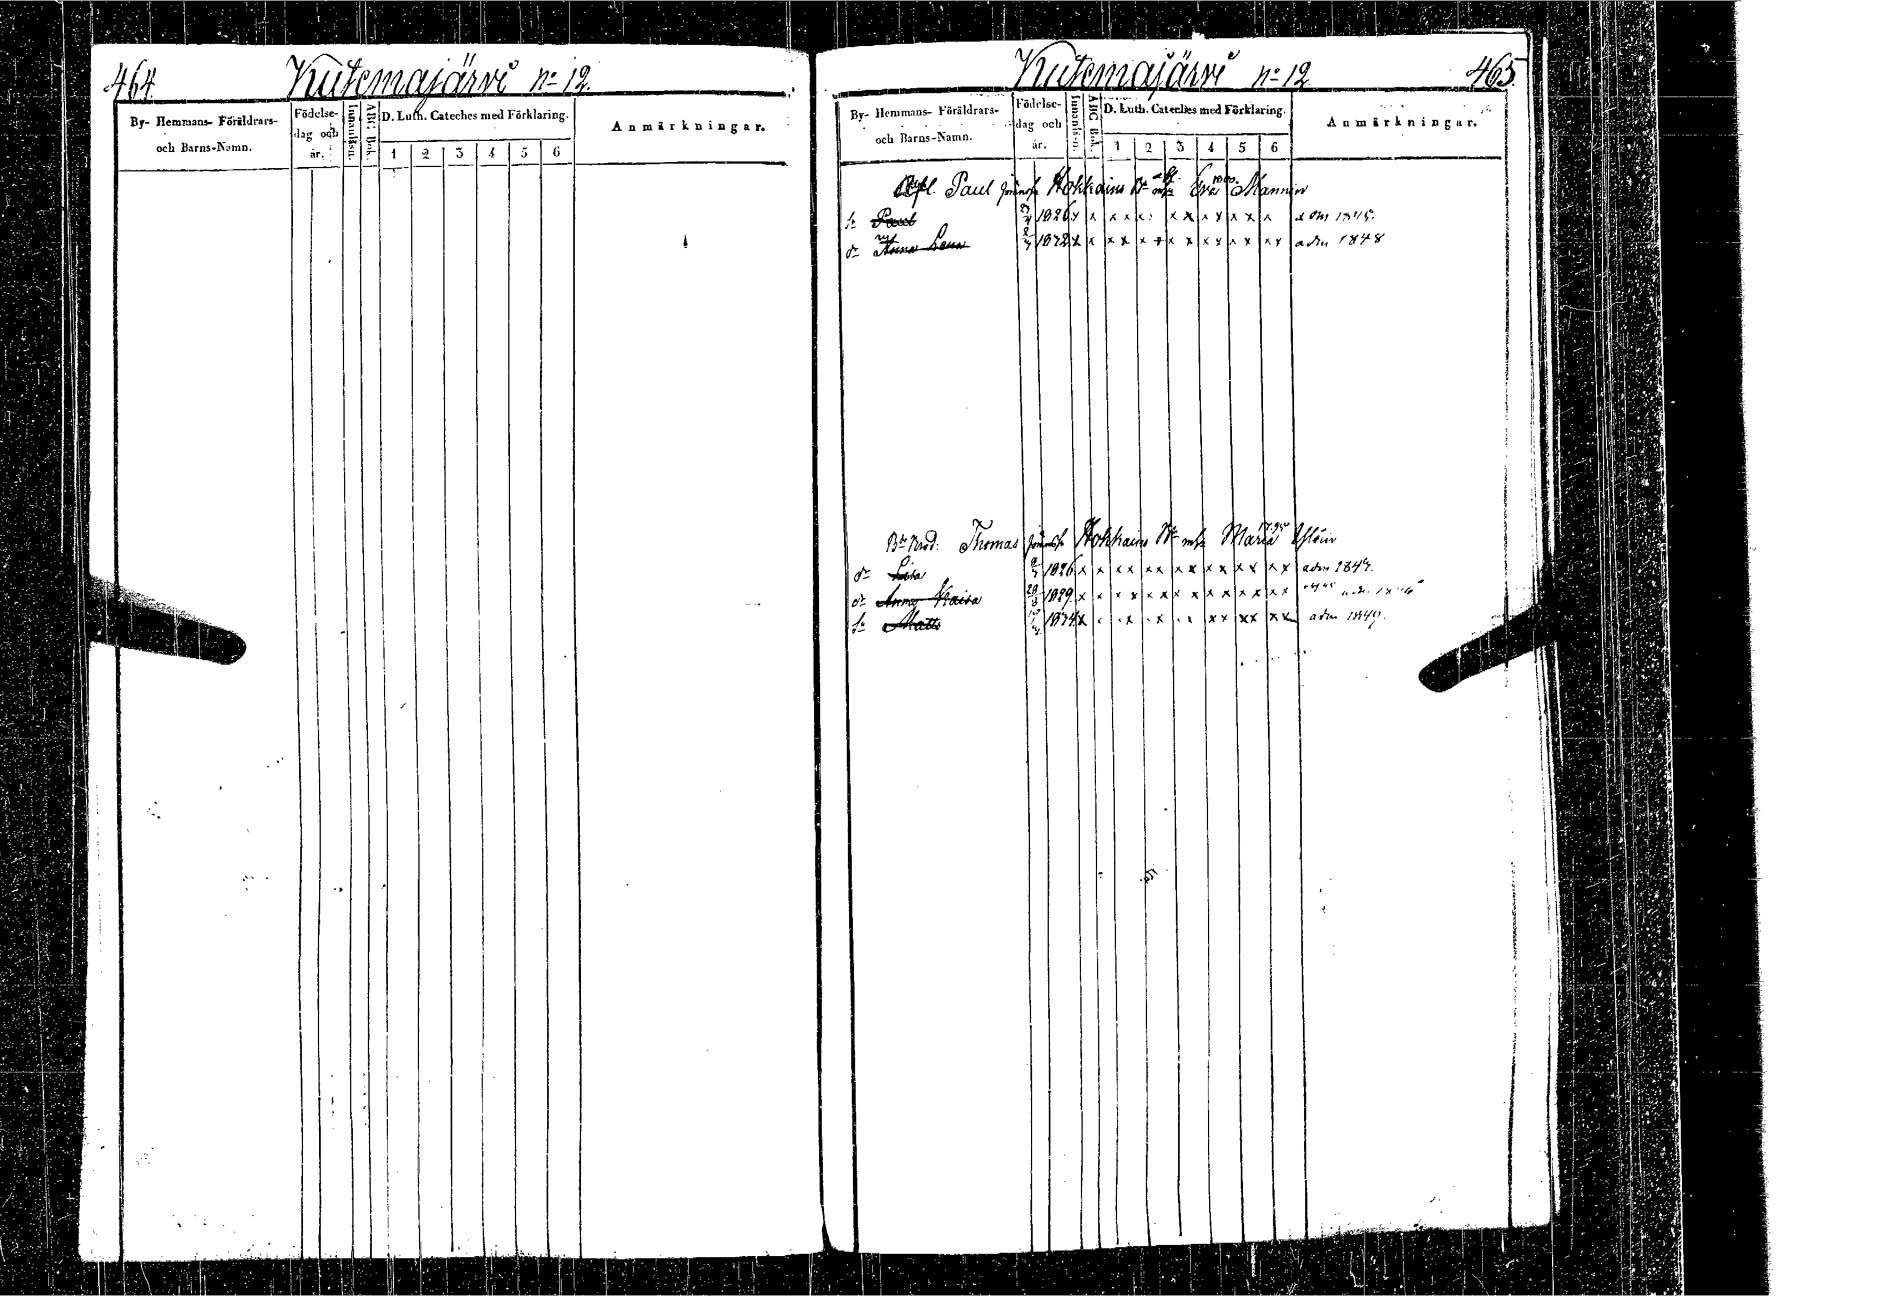 464. Kutemajärvi No 12.
By- Hemmans- Föräldrars- och Barns-Namn.
Födelse- dag och år.
Innanläsn.
ABC Bok.
D. Luth. Cateches med Förklaring.
1 2 3 4 5 6
Anmärkningar.
Kutemajärvi No 12 465.
By- Hemmans- Föräldrars- och Barns-Namn.
Födelse- dag och år.
Innanläsn.
ABC Bok.
D. Luth. Cateches med Förklaring.
1 2 3 4 5 6
Anmärkningar.
Paul Hokkain Eva Mannin
Sn Paul 1826 x x x x x x x x x x x adm 1845.
Dr Anna Lena x x x x x x x x x x x x adm 1848
Brod: Thomas Hokkain Maria
Dr Lisa 1826 x x x x x x x x x x x x x x adm 1847.
Dr Anna Kaisa 1829 x x x x x x x x x x x x x x
Sn Matts 1834 x x x x x x x x x adm 1849.